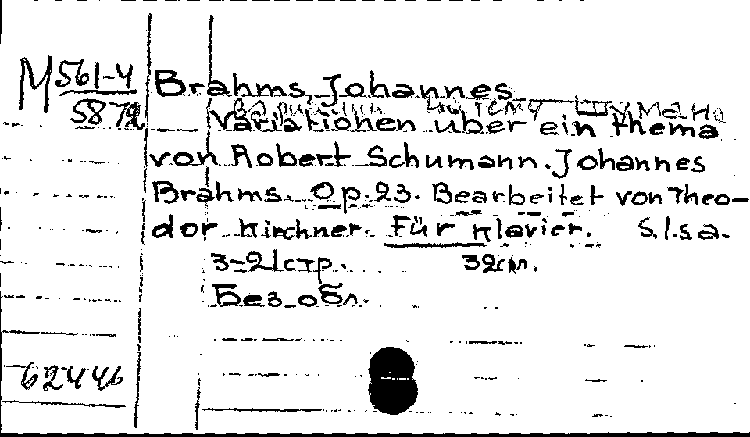 М 561-4
5872
Brahms, Johannes
Вариации на тему Шумана
Variationen über ein thema
von Robert Schumann. Johannes
Brahms. Op. 23. Bearbeitet von Theo-
dor Kirchner. Für Klavier. S.l.s.a.
3-21 стр. 32см.
Без обл.
62446